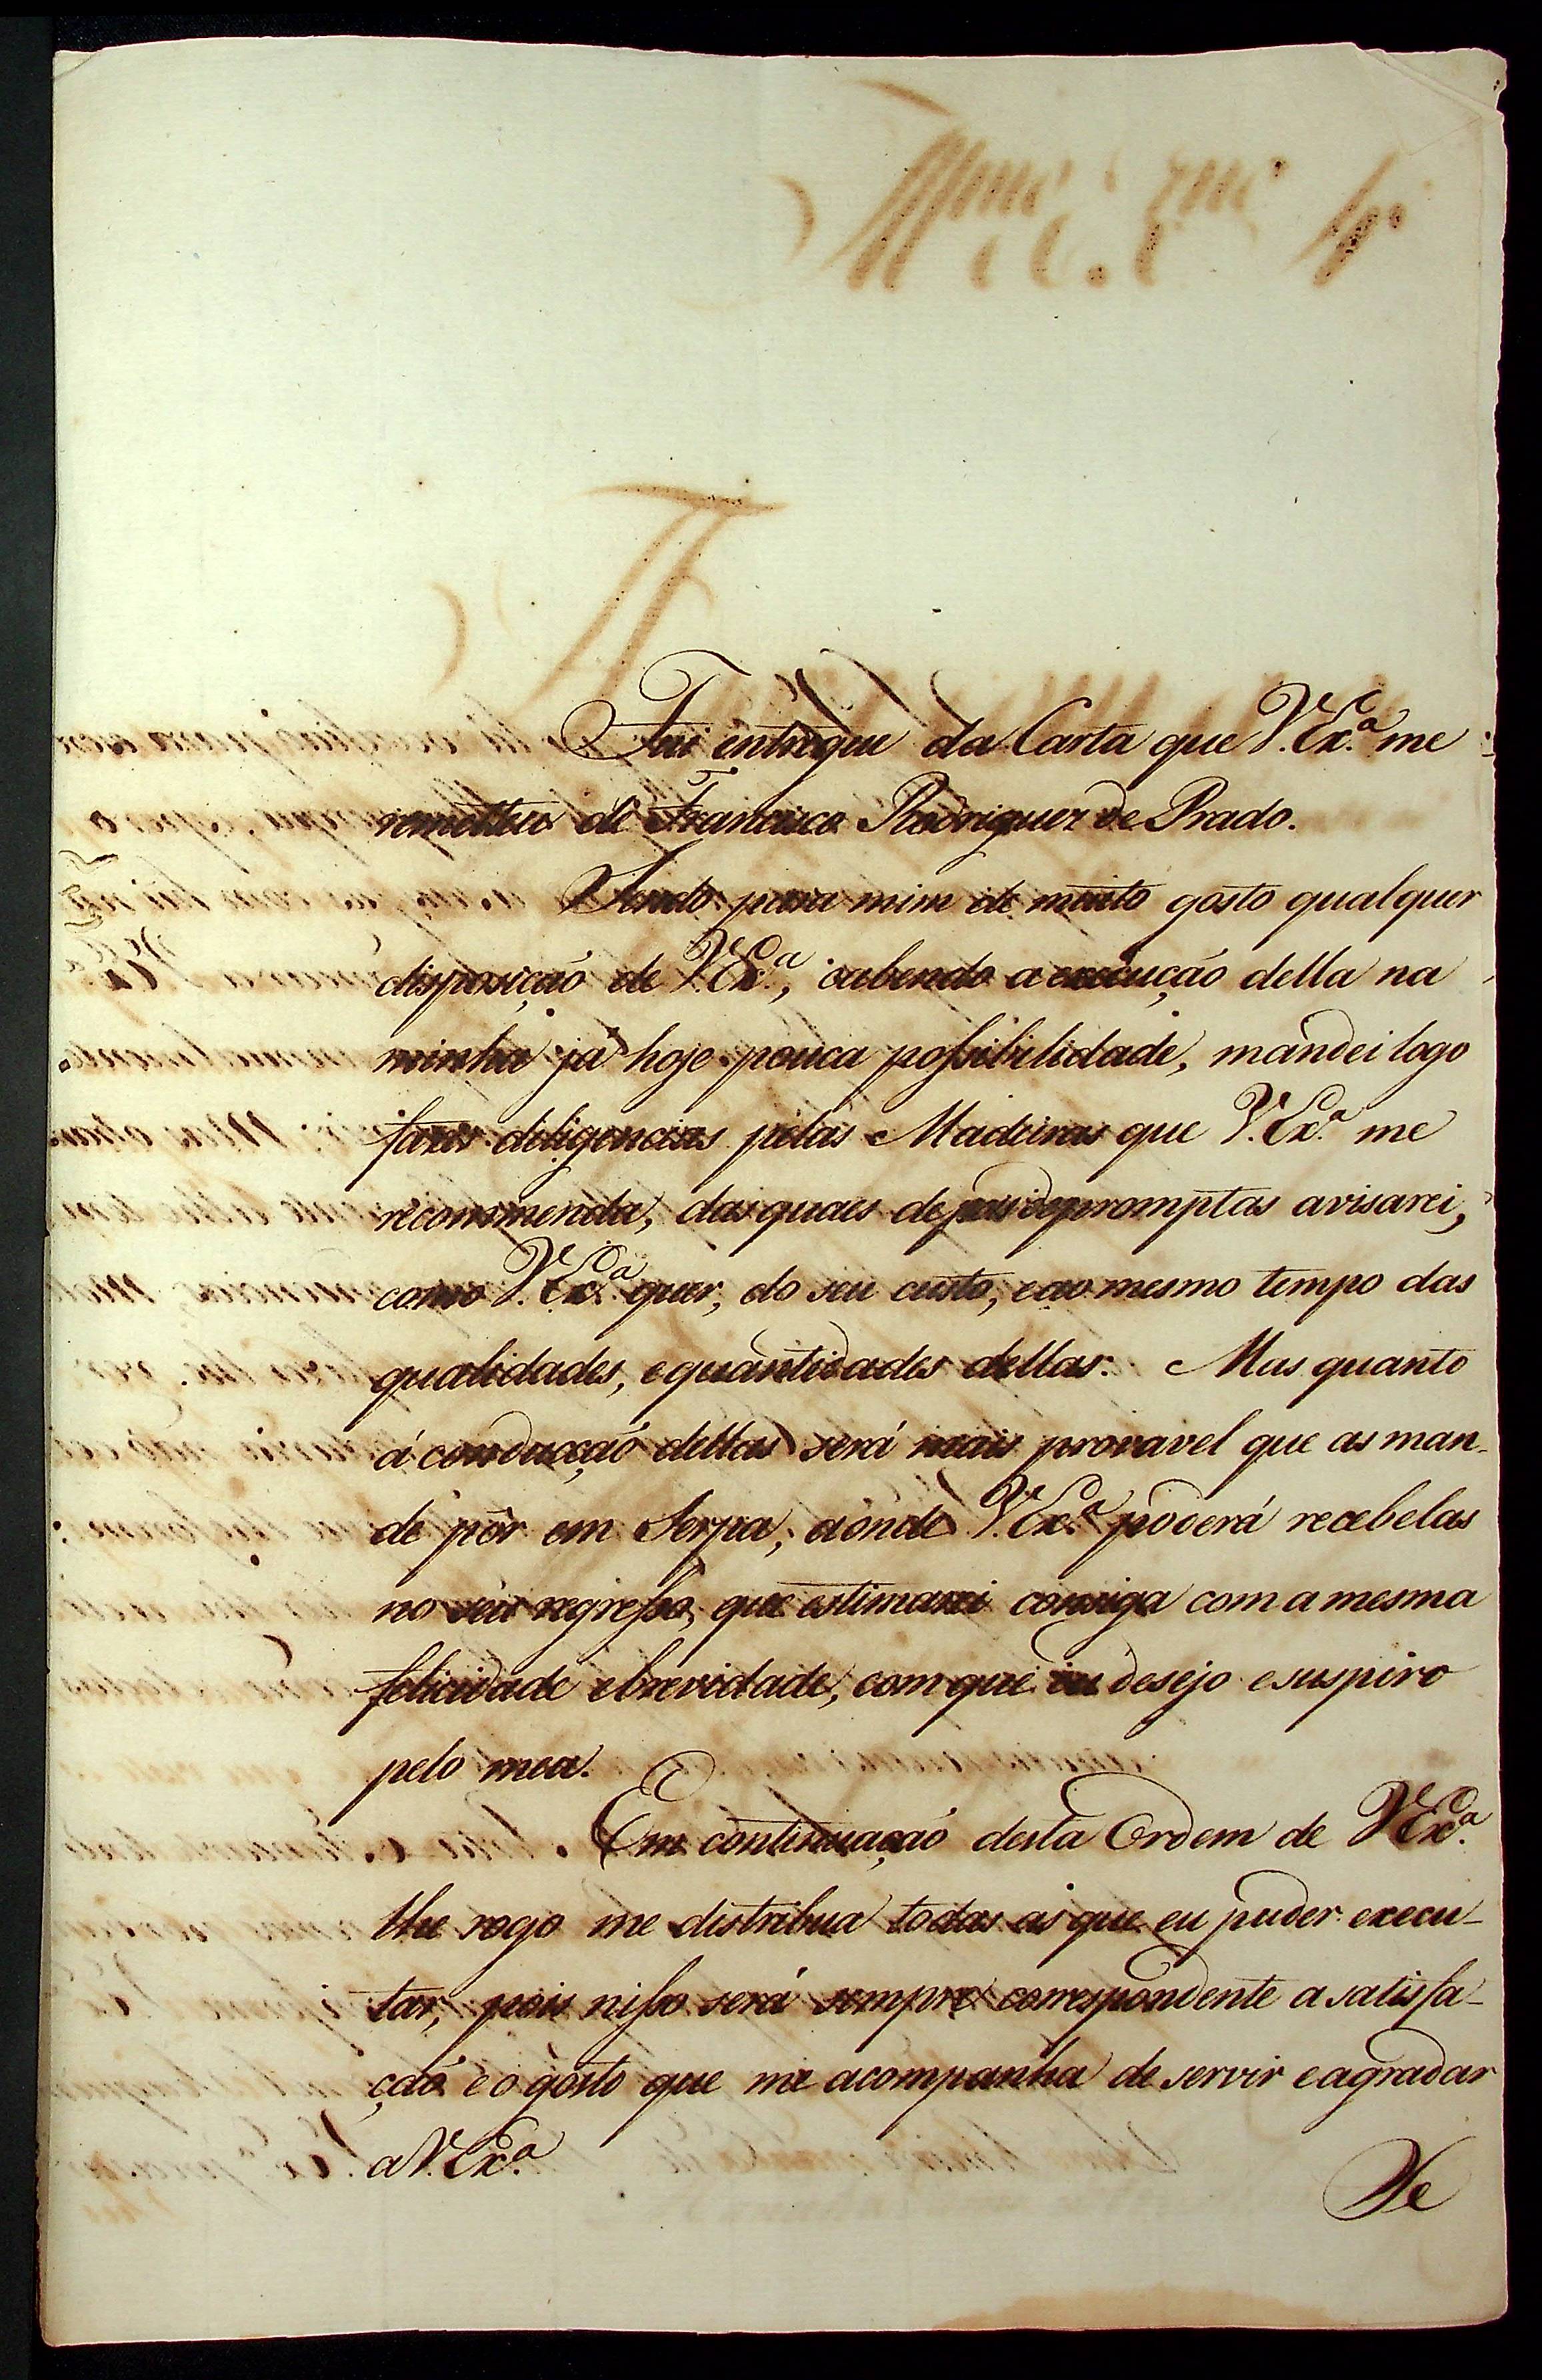 Fui entregue da Carta que V. Ex.ª me
remetteu de Francisco Rodriguez de Prado.
Sendo para mim de muito gosto qualquer
disposição de V. Ex.ª, cabendo a execução della na
minha já hoje pouca poſsibilidade, mandei logo
fazer deligencias pelas Madeiras que V. Ex.ª me
recommenda, das quaes depois de promptas avisarei,
como V. Ex.ª quer, do seu custo, e ao mesmo tempo das
qualidades, e quantidades dellas. Mas quanto
á conducção dellas será mais provavel que as man-
de pôr em Serpa, aonde V. Ex.ª poderá recebelas
no seu regreſso, que estimarei consiga com a mesma
felicidade e brevidade, com que eu desejo e suspiro
pelo meu.
Em continuação desta Ordem de V. Ex.ª
lhe rogo me distribua todas as que eu puder execu-
tar, pois niſso será sempre correspondente a satisfa-
ção e o gosto que me acompanha de servir e agradar
a V. Ex.ª
Se